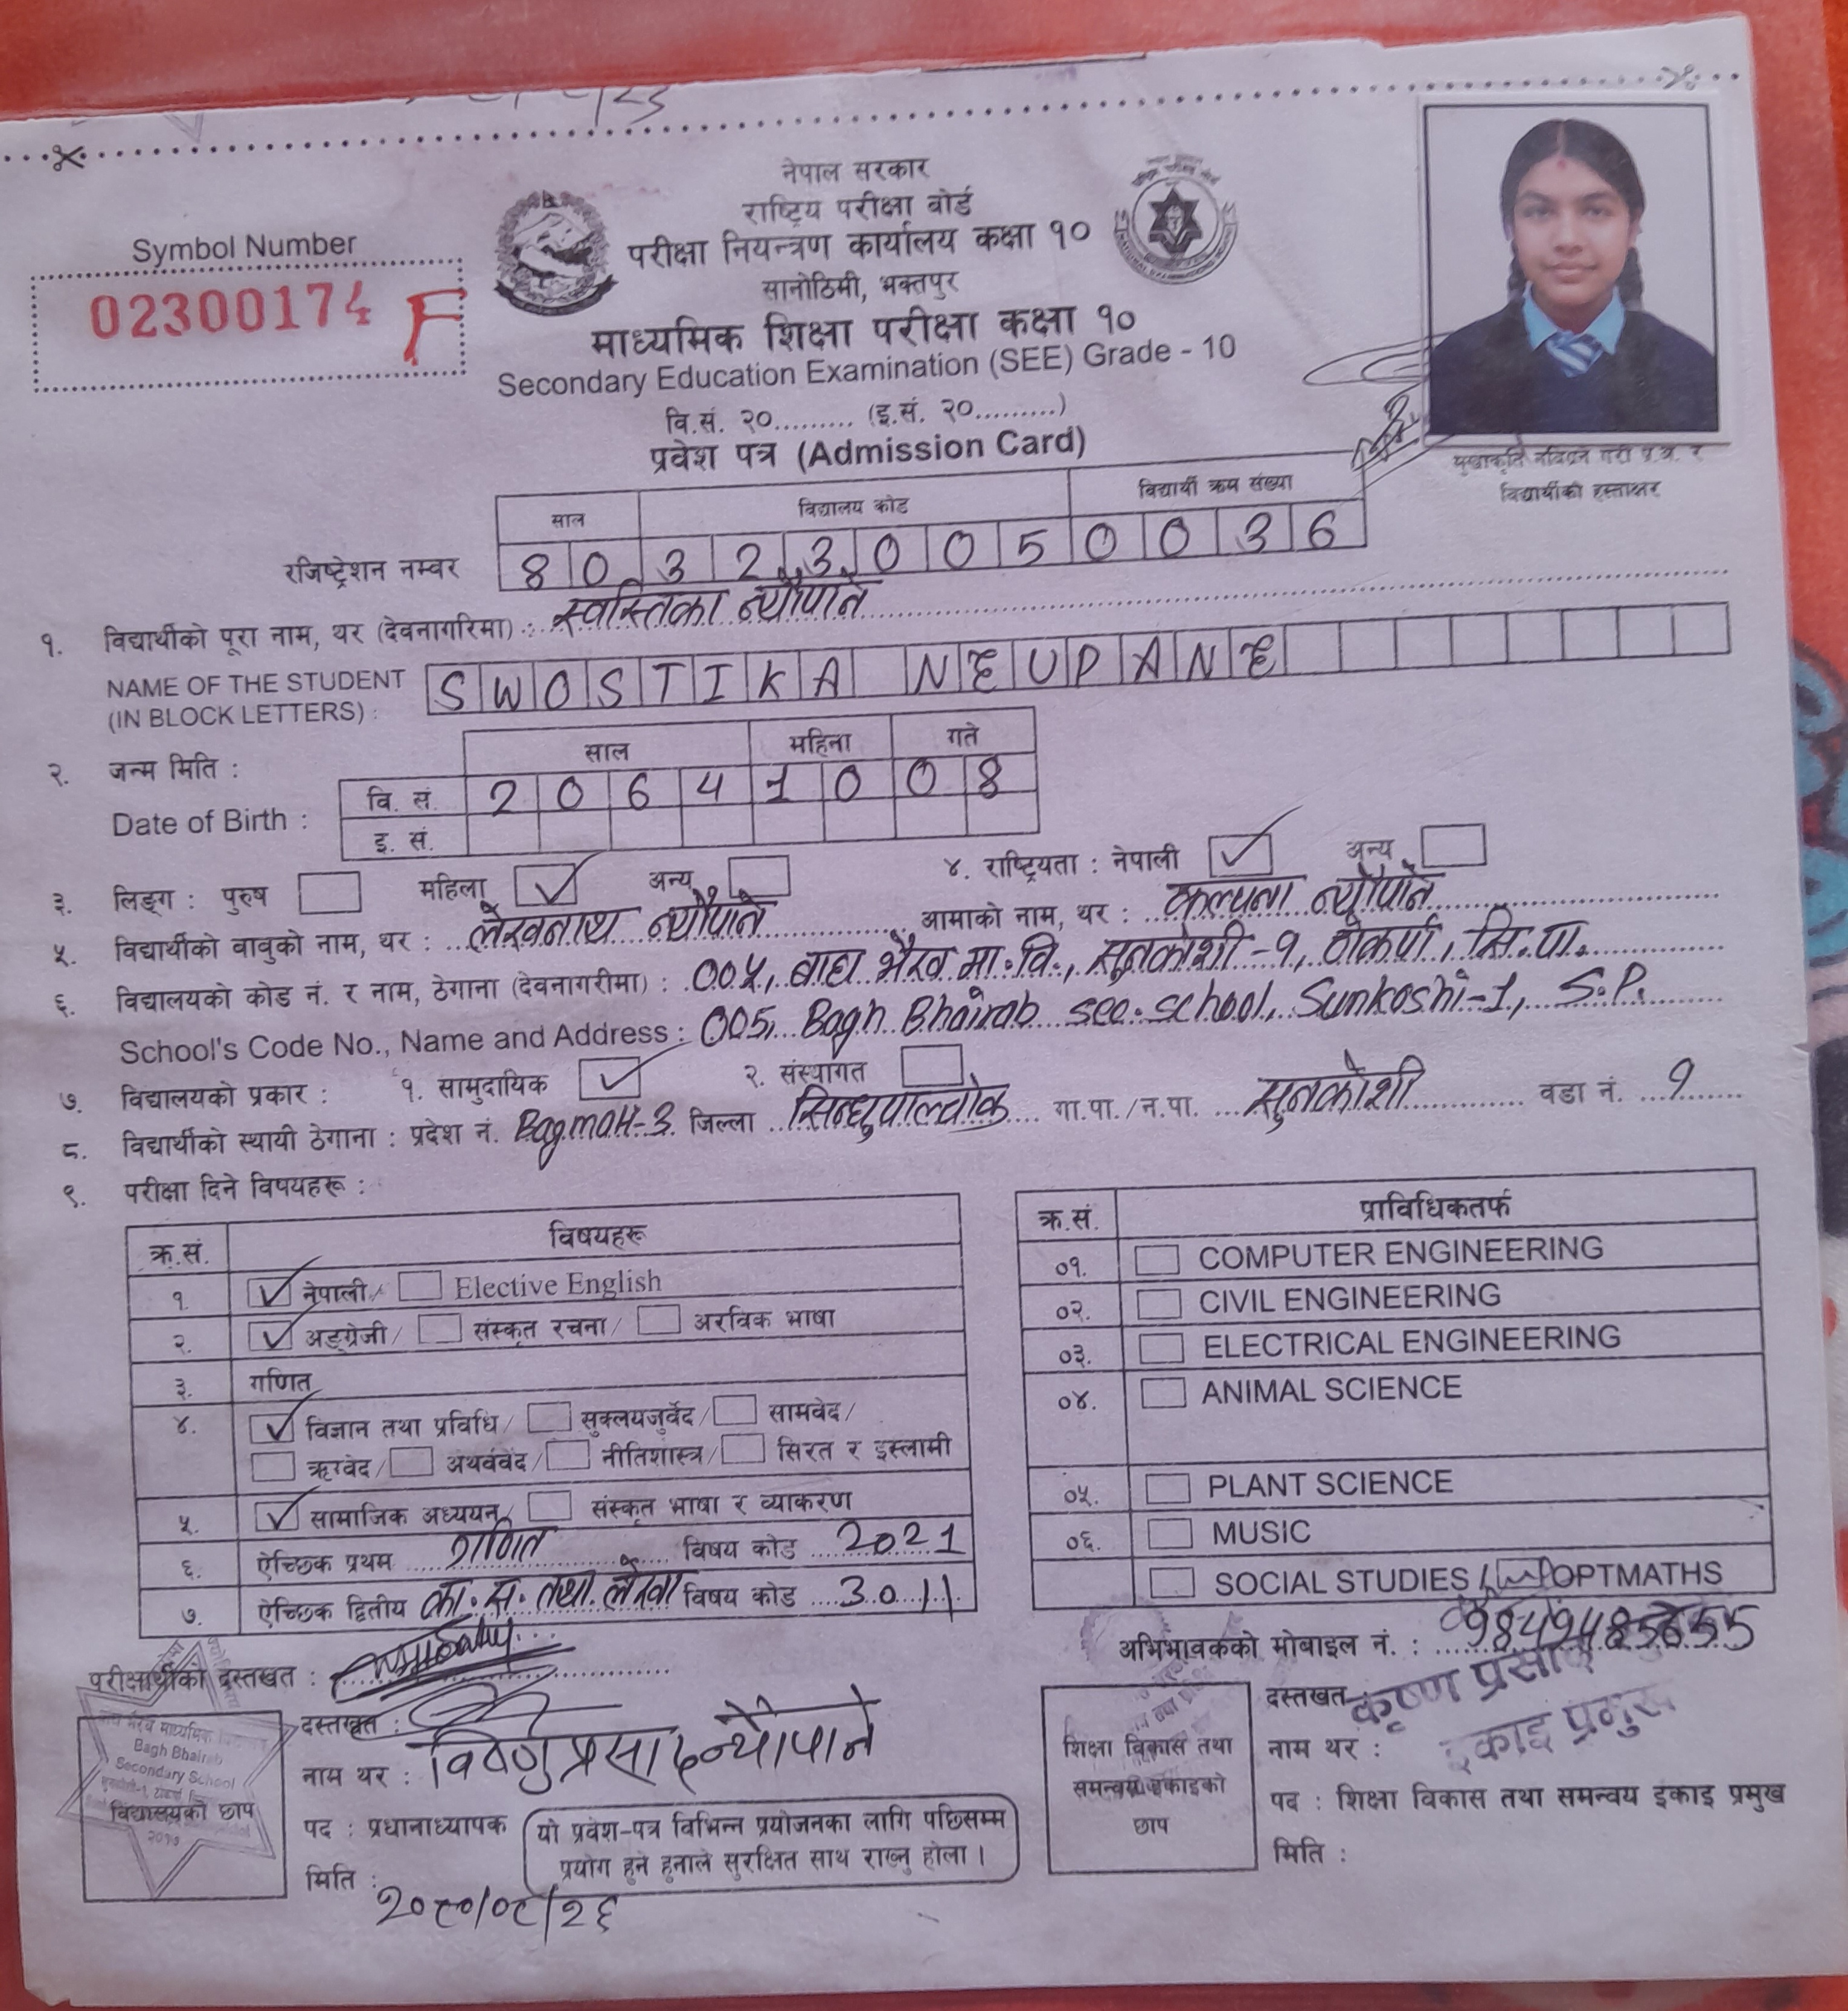 नेपाल सरकार
राष्ट्रिय परीक्षा बोर्ड
परीक्षा नियन्त्रण कार्यालय कक्षा १०
सानोठिमी, भक्तपुर
माध्यमिक शिक्षा परीक्षा कक्षा १०
Secondary Education Examination (SEE) Grade - 10
वि.सं. २०......... (इ.सं. २०.........)
प्रवेश पत्र (Admission Card)
Symbol Number
02300174 F
विद्यार्थीको हस्ताक्षर
साल विद्यालय कोड विद्यार्थी क्रम संख्या
रजिष्ट्रेशन नम्बर 8 0 3 2 3 0 0 5 0 0 3 6
१. विद्यार्थीको पूरा नाम, थर (देवनागरिमा) : स्वस्तिका न्यौपाने
NAME OF THE STUDENT SWOSTIKA NEUPANE
(IN BLOCK LETTERS) :
साल महिना गते
२. जन्म मिति :
वि. सं. 2 0 6 4 1 0 0 8
Date of Birth :
इ. सं.
३. लिङ्ग : पुरुष महिला ✓ अन्य ४. राष्ट्रियता : नेपाली ✓ अन्य
५. विद्यार्थीको बाबुको नाम, थर : लेखनाथ न्यौपाने आमाको नाम, थर : कल्पना न्यौपाने
६. विद्यालयको कोड नं. र नाम, ठेगाना (देवनागरीमा) : ००५, बाघ भैरव मा.वि., सुनकोशी-१, ठोकर्पा, सि.पा.
School's Code No., Name and Address : 005, Bagh Bhairab sec. school, Sunkoshi-1, S.P.
७. विद्यालयको प्रकार : १. सामुदायिक ✓ २. संस्थागत
८. विद्यार्थीको स्थायी ठेगाना : प्रदेश नं. Bagmati-3 जिल्ला सिन्धुपाल्चोक गा.पा./न.पा. सुनकोशी वडा नं. १
९. परीक्षा दिने विषयहरू :
क्र.सं. विषयहरू
१. ✓ नेपाली/ Elective English
२. ✓ अङ्ग्रेजी/ संस्कृत रचना/ अरविक भाषा
३. गणित
४. ✓ विज्ञान तथा प्रविधि/ सुक्लयजुर्वेद/ सामवेद/
ऋग्वेद/ अथर्ववेद/ नीतिशास्त्र/ सिरत र इस्लामी
५. ✓ सामाजिक अध्ययन/ संस्कृत भाषा र व्याकरण
६. ऐच्छिक प्रथम गणित विषय कोड 2021
७. ऐच्छिक द्वितीय का. स. तथा लेखा विषय कोड 3011
क्र.सं. प्राविधिकतर्फ
०१. COMPUTER ENGINEERING
०२. CIVIL ENGINEERING
०३. ELECTRICAL ENGINEERING
०४. ANIMAL SCIENCE
०५. PLANT SCIENCE
०६. MUSIC
SOCIAL STUDIES / OPTMATHS
परीक्षार्थीको दस्तखत :
अभिभावकको मोबाइल नं. :
दस्तखत :
नाम थर : विष्णु प्रसाद न्यौपाने
पद : प्रधानाध्यापक
मिति : २०८०/०८/२६
Bagh Bhairab
Secondary School
विद्यालयको छाप
यो प्रवेश-पत्र विभिन्न प्रयोजनका लागि पछिसम्म
प्रयोग हुने हुनाले सुरक्षित साथ राख्नु होला ।
शिक्षा विकास तथा
समन्वय इकाइको
छाप
दस्तखत
कृष्ण प्रसाद
नाम थर :
इकाइ प्रमुख
पद : शिक्षा विकास तथा समन्वय इकाइ प्रमुख
मिति :